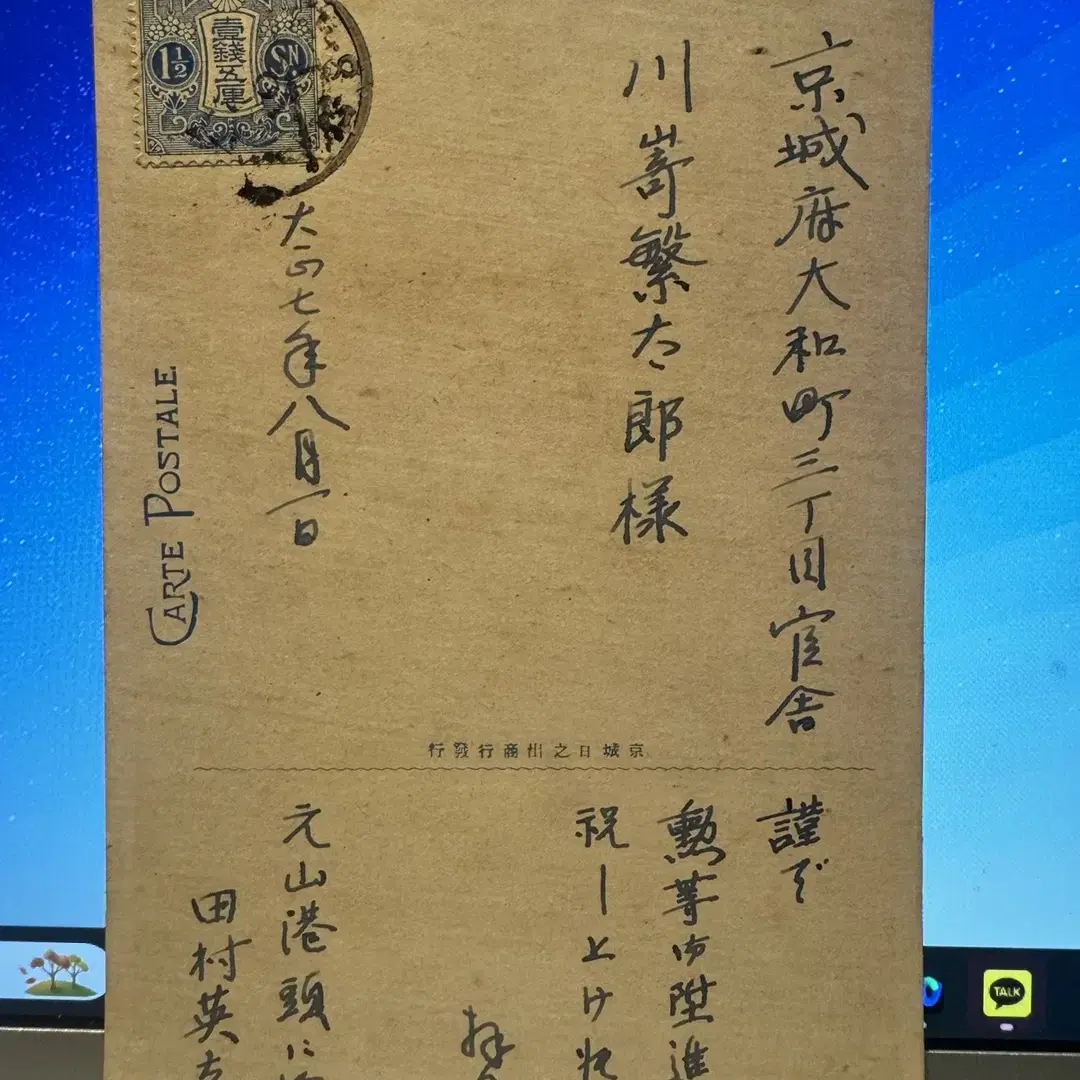 京城府大和町三丁目官舎
川嵜繁太郎様
大正七年八月一日
壹錢五厘
1½ SN
CARTE POSTALE
京城日之出商行發行
謹で
勲等御陞進
祝し上け
拝
元山港頭に
田村英
TALK